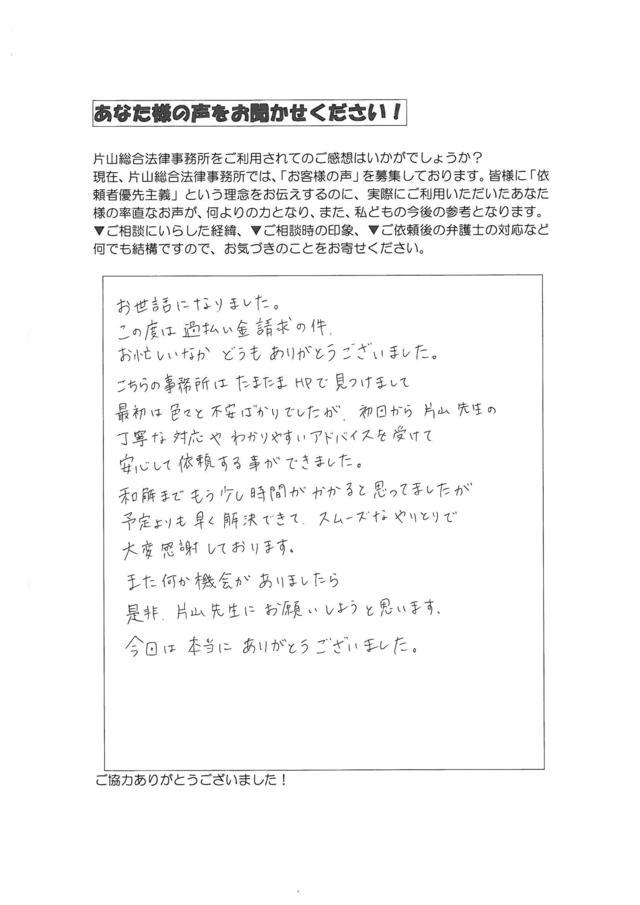 あなた様の声をお聞かせください！
片山総合法律事務所をご利用されてのご感想はいかがでしょうか？
現在、片山総合法律事務所では、「お客様の声」を募集しております。皆様に「依
頼者優先主義」という理念をお伝えするのに、実際にご利用いただいたあなた
様の率直なお声が、何よりの力となり、また、私どもの今後の参考となります。
▼ご相談にいらした経緯、▼ご相談時の印象、▼ご依頼後の弁護士の対応など
何でも結構ですので、お気づきのことをお寄せください。
お世話になりました。
この度は過払い金請求の件、
お忙しいなか どうも ありがとうございました。
こちらの事務所は たまたま HPで見つけまして
最初は色々と不安ばかりでしたが、初回から片山先生の
丁寧な対応や わかりやすいアドバイスを受けて
安心して依頼する事ができました。
和解まで もう少し時間が かかると思ってましたが
予定よりも早く解決できて、スムーズなやりとりで
大変感謝しております。
また何か機会が ありましたら
是非、片山先生に お願いしようと思います。
今回は 本当に ありがとうございました。
ご協力ありがとうございました！